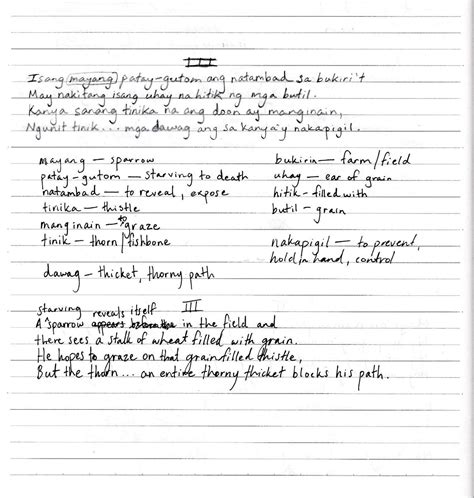 III
Isang mayang patay-gutom ang natambad sa bukiri't
May nakitang isang uhay na hitik ng mga butil.
Kanya sanang tinika na ang doon ay manginain,
Ngunit tinik... mga dawag ang sa kanya'y nakapigil.
mayang — sparrow
bukiria — farm/field
patay-gutom — starving to death
uhay — ear of grain
natambad — to reveal, expose
hitik — filled with
tinika — thistle
butil — grain
manginain — to graze
tinik — thorn/fishbone
nakapigil — to prevent,
hold in hand, control
dawag — thicket, thorny path
III
starving reveals itself
A sparrow appears in the field and
there sees a stalk of wheat filled with grain.
He hopes to graze on that grainfilled thistle,
But the thorn... an entire thorny thicket blocks his path.